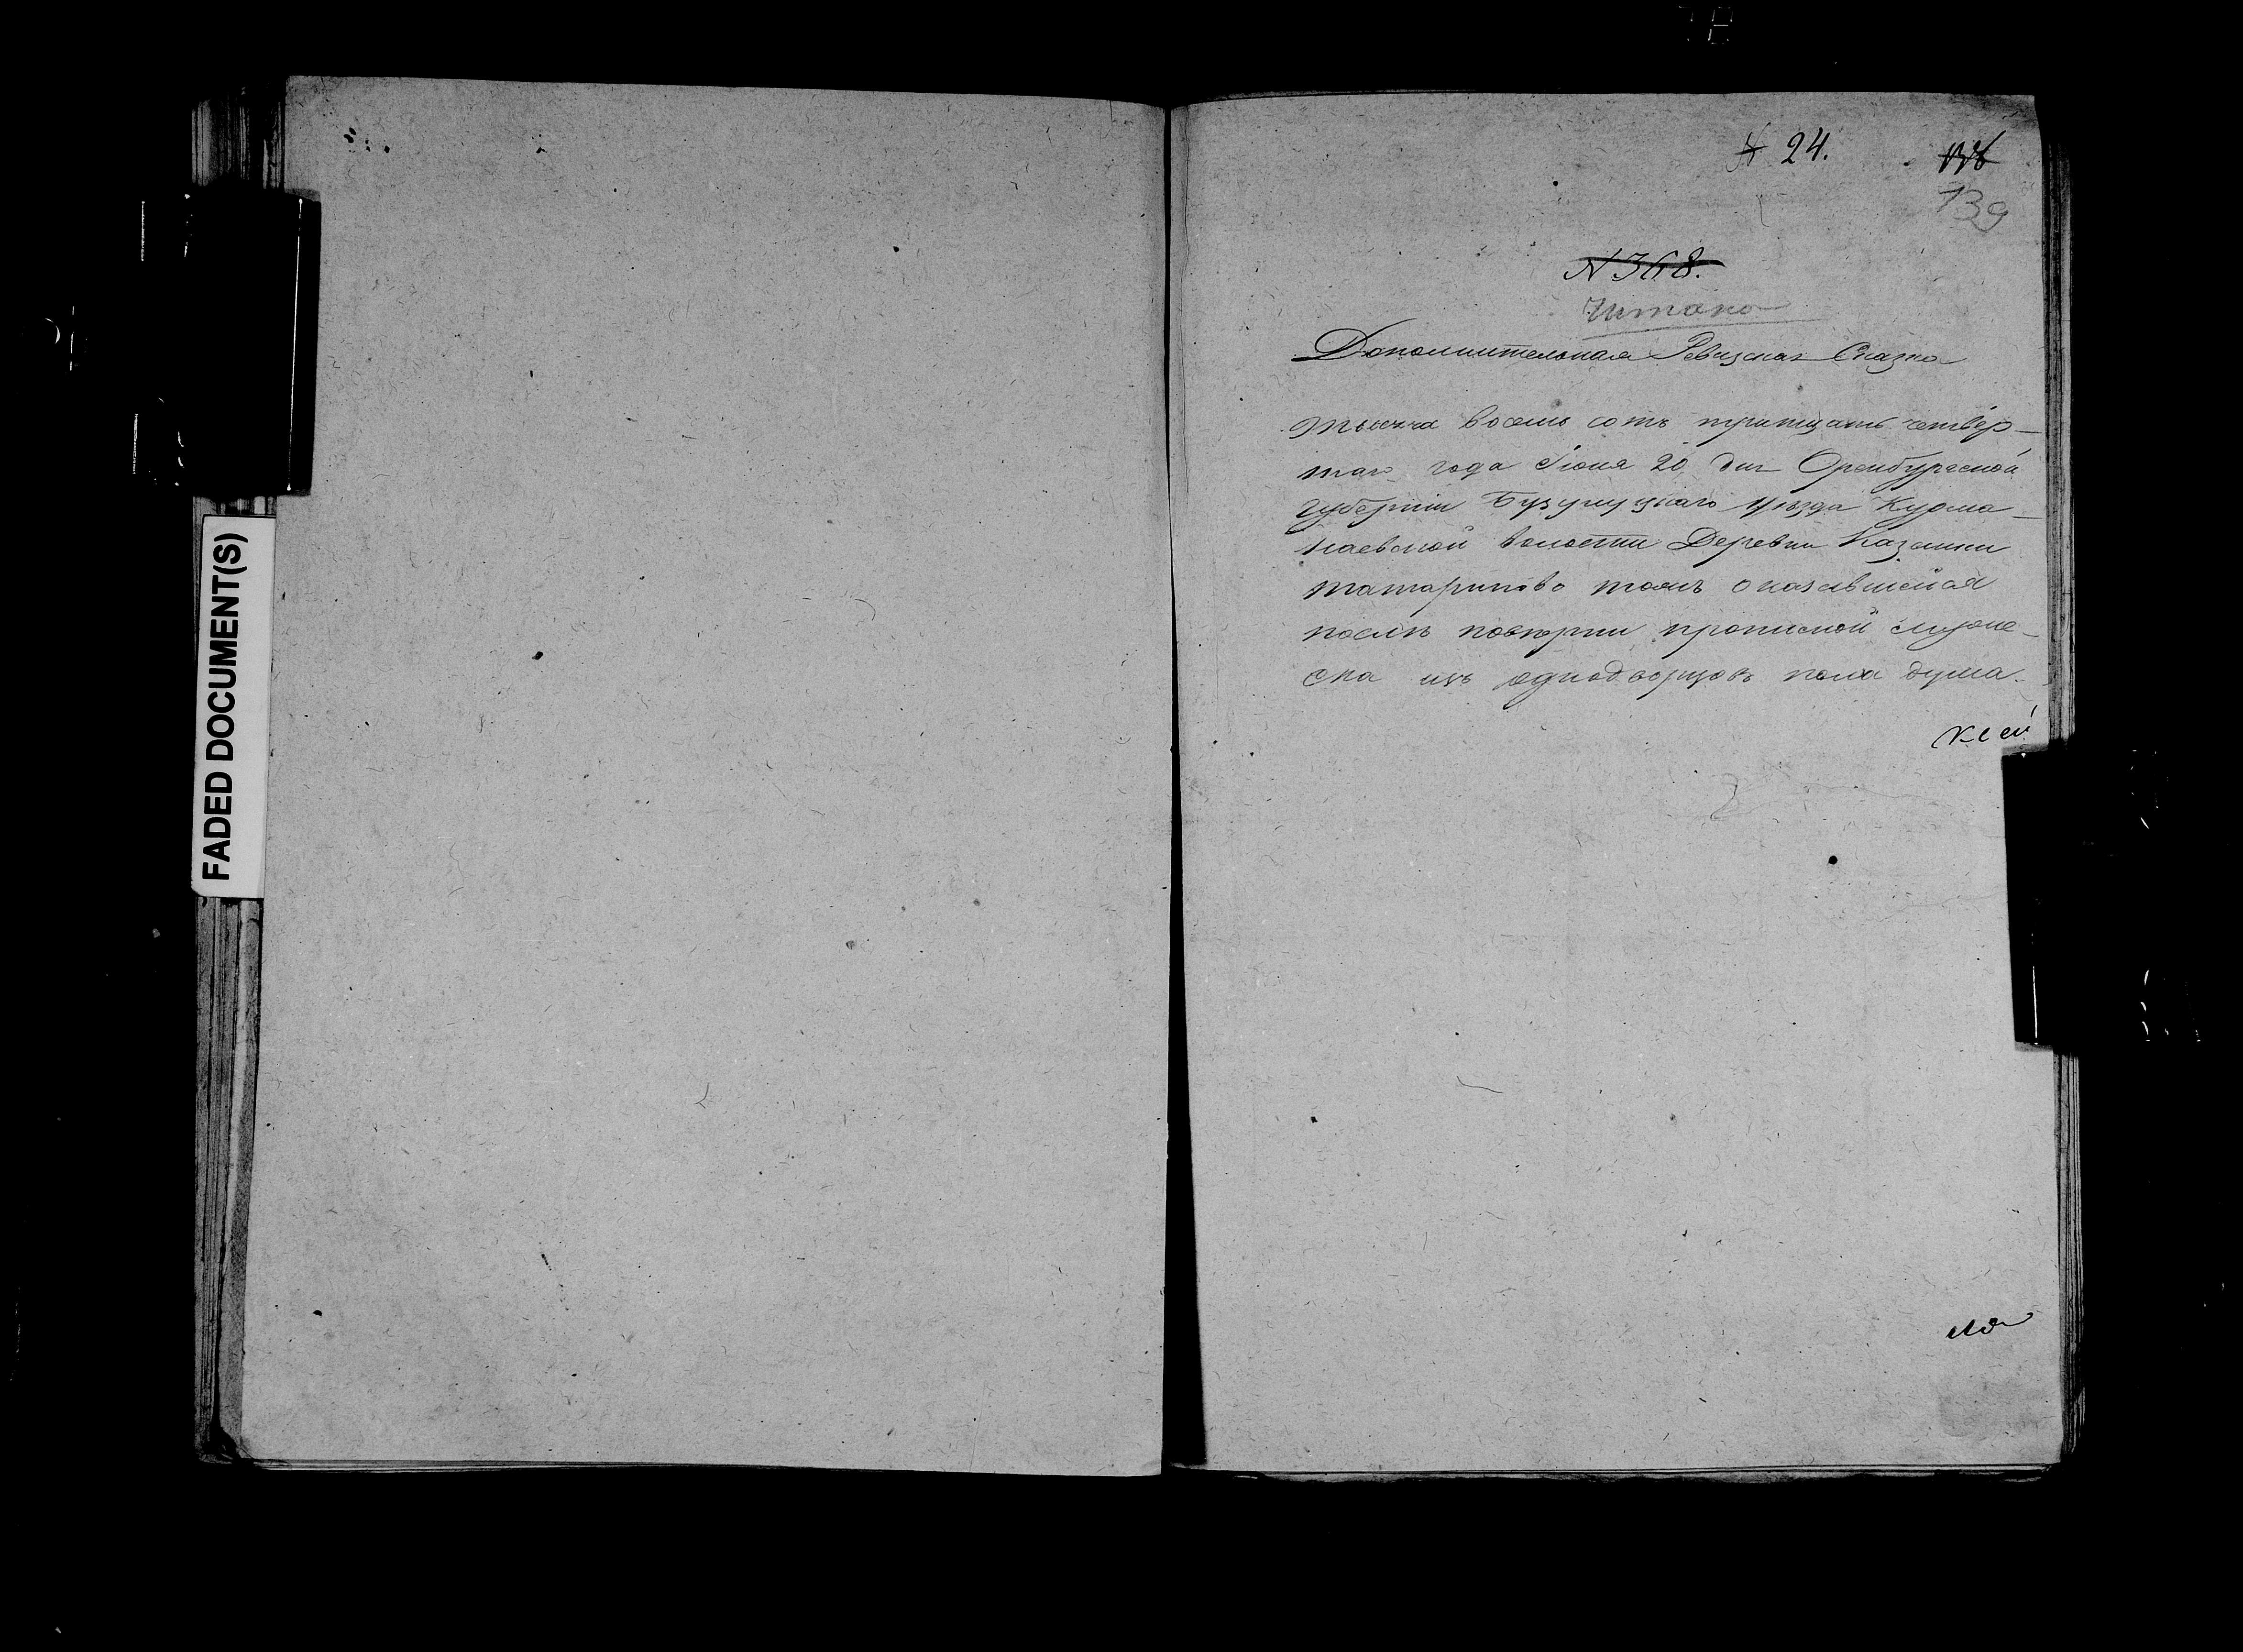 № 24.
139
№ 368.
Читано
Дополнительная Ревизская Сказка
Тысяча восемь сотъ тритцать четвер-
таго года Іюня 20 дня Оренбургской
Губерніи Бузулуцкаго уѣзда Курма-
наевской волости Деревни Казанки
татариново тожъ оказавшейся
послѣ повѣрки прописной мужес-
ска изъ однодворцовъ пола душа.
Къ сей
FADED DOCUMENT(S)